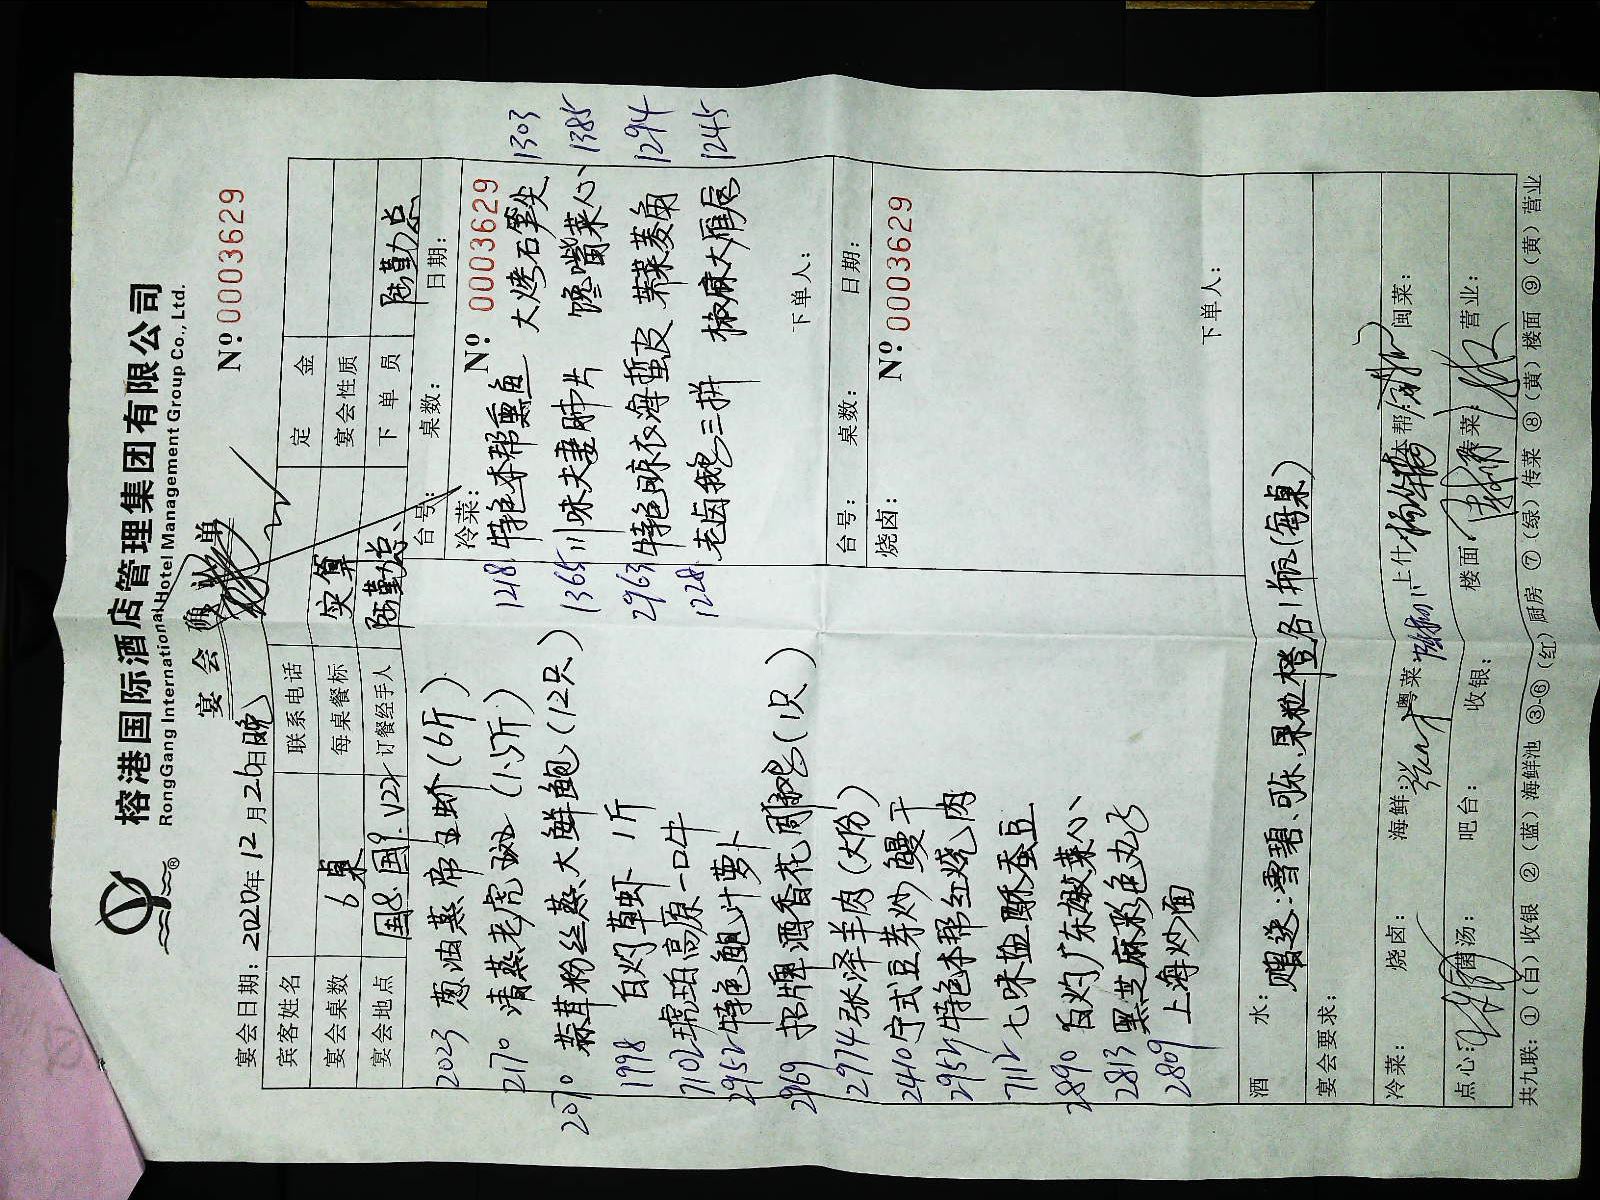 榕港国际酒店管理集团有限公司
RongGang International Hotel Management Group Co., Ltd.
®
宴会
单
宴会日期：2020年12月26日晚
No.0003629
宾客姓名 联系电话 定金
宴会桌数 6桌 每桌餐标 实算 宴会性质
宴会地点 国8.国9.V22 订餐经手人 陆勤总 下单员 陆勤总
台号： 桌数： 日期：
冷菜： No.0003629
1218 特色本帮熏鱼 大烤石笋尖 1303
1365 川味夫妻肺片 馋嘴菜心 1385
2963 特色麻衣海蜇皮 荠菜菱角 1294
1228 老卤鹅三拼 椒麻大雁 1245
下单人：
2023 葱油蒸帝王蚧（6斤）
2170 清蒸老虎斑（1.5斤）
2070 蒜茸粉丝蒸大鲜鲍（12只）
1998 白灼草虾 1斤
7102 琥珀高原一口牛
2952 特色鲍汁萝卜
2969 招牌酒香花雕鸡（1只）
2974 张泽羊肉（大份）
2410 宁式豆芽炒鳗干
2957 特色本帮红烧肉
7112 七味盐酥蚕豆
2890 白灼广东嫩菜心
2813 黑芝麻彩色丸子
2809 上海炒面
台号： 桌数： 日期：
烧卤： No.0003629
下单人：
酒水：赠送：雪碧、可乐、果粒橙各1瓶（每桌）
宴会要求：
冷菜： 烧卤： 海鲜： 粤菜： 上什： 本帮： 闽菜：
点心： 菌汤： 吧台： 收银： 楼面： 传菜： 营业：
共九联：①（白）收银 ②（蓝）海鲜池 ③-⑥（红）厨房 ⑦（绿）传菜 ⑧（黄）楼面 ⑨（黄）营业